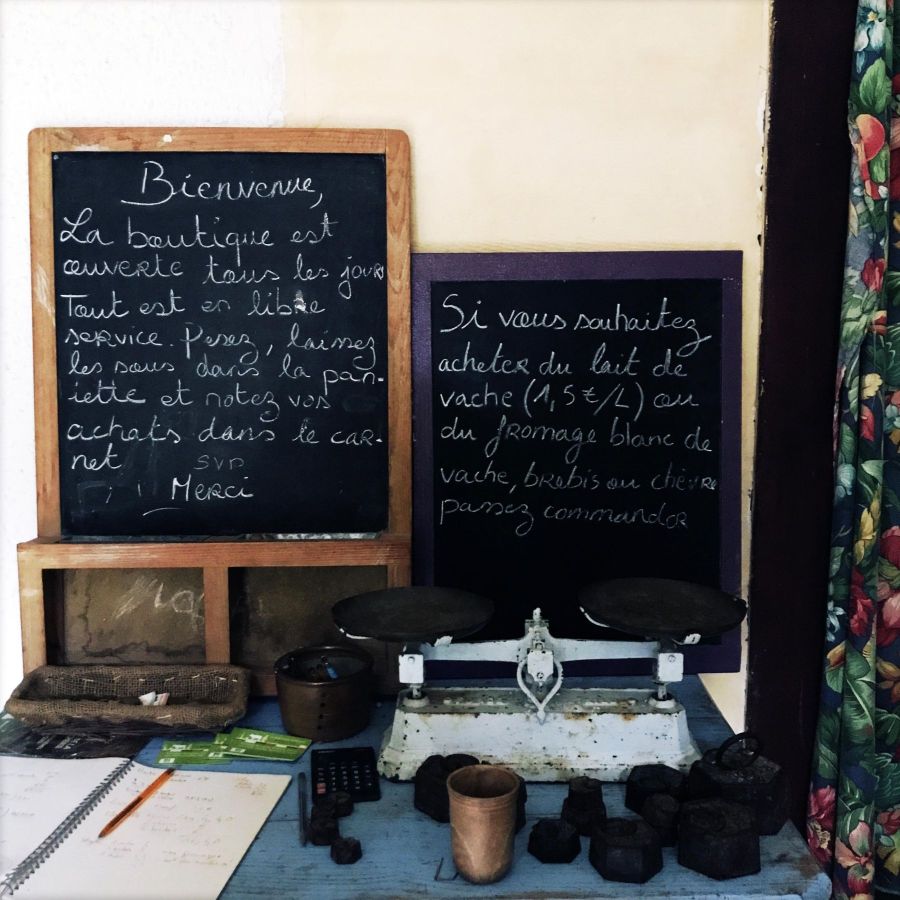 Bienvenue,
La boutique est
ouverte tous les jours
Tout est en libre
service. Pesez, laissez
les sous dans la pan-
iette et notez vos
achats dans le car-
net SVP
Merci
Si vous souhaitez
acheter du lait de
vache (1,5€/L) ou
du fromage blanc de
vache, brebis ou chèvre
passez commander